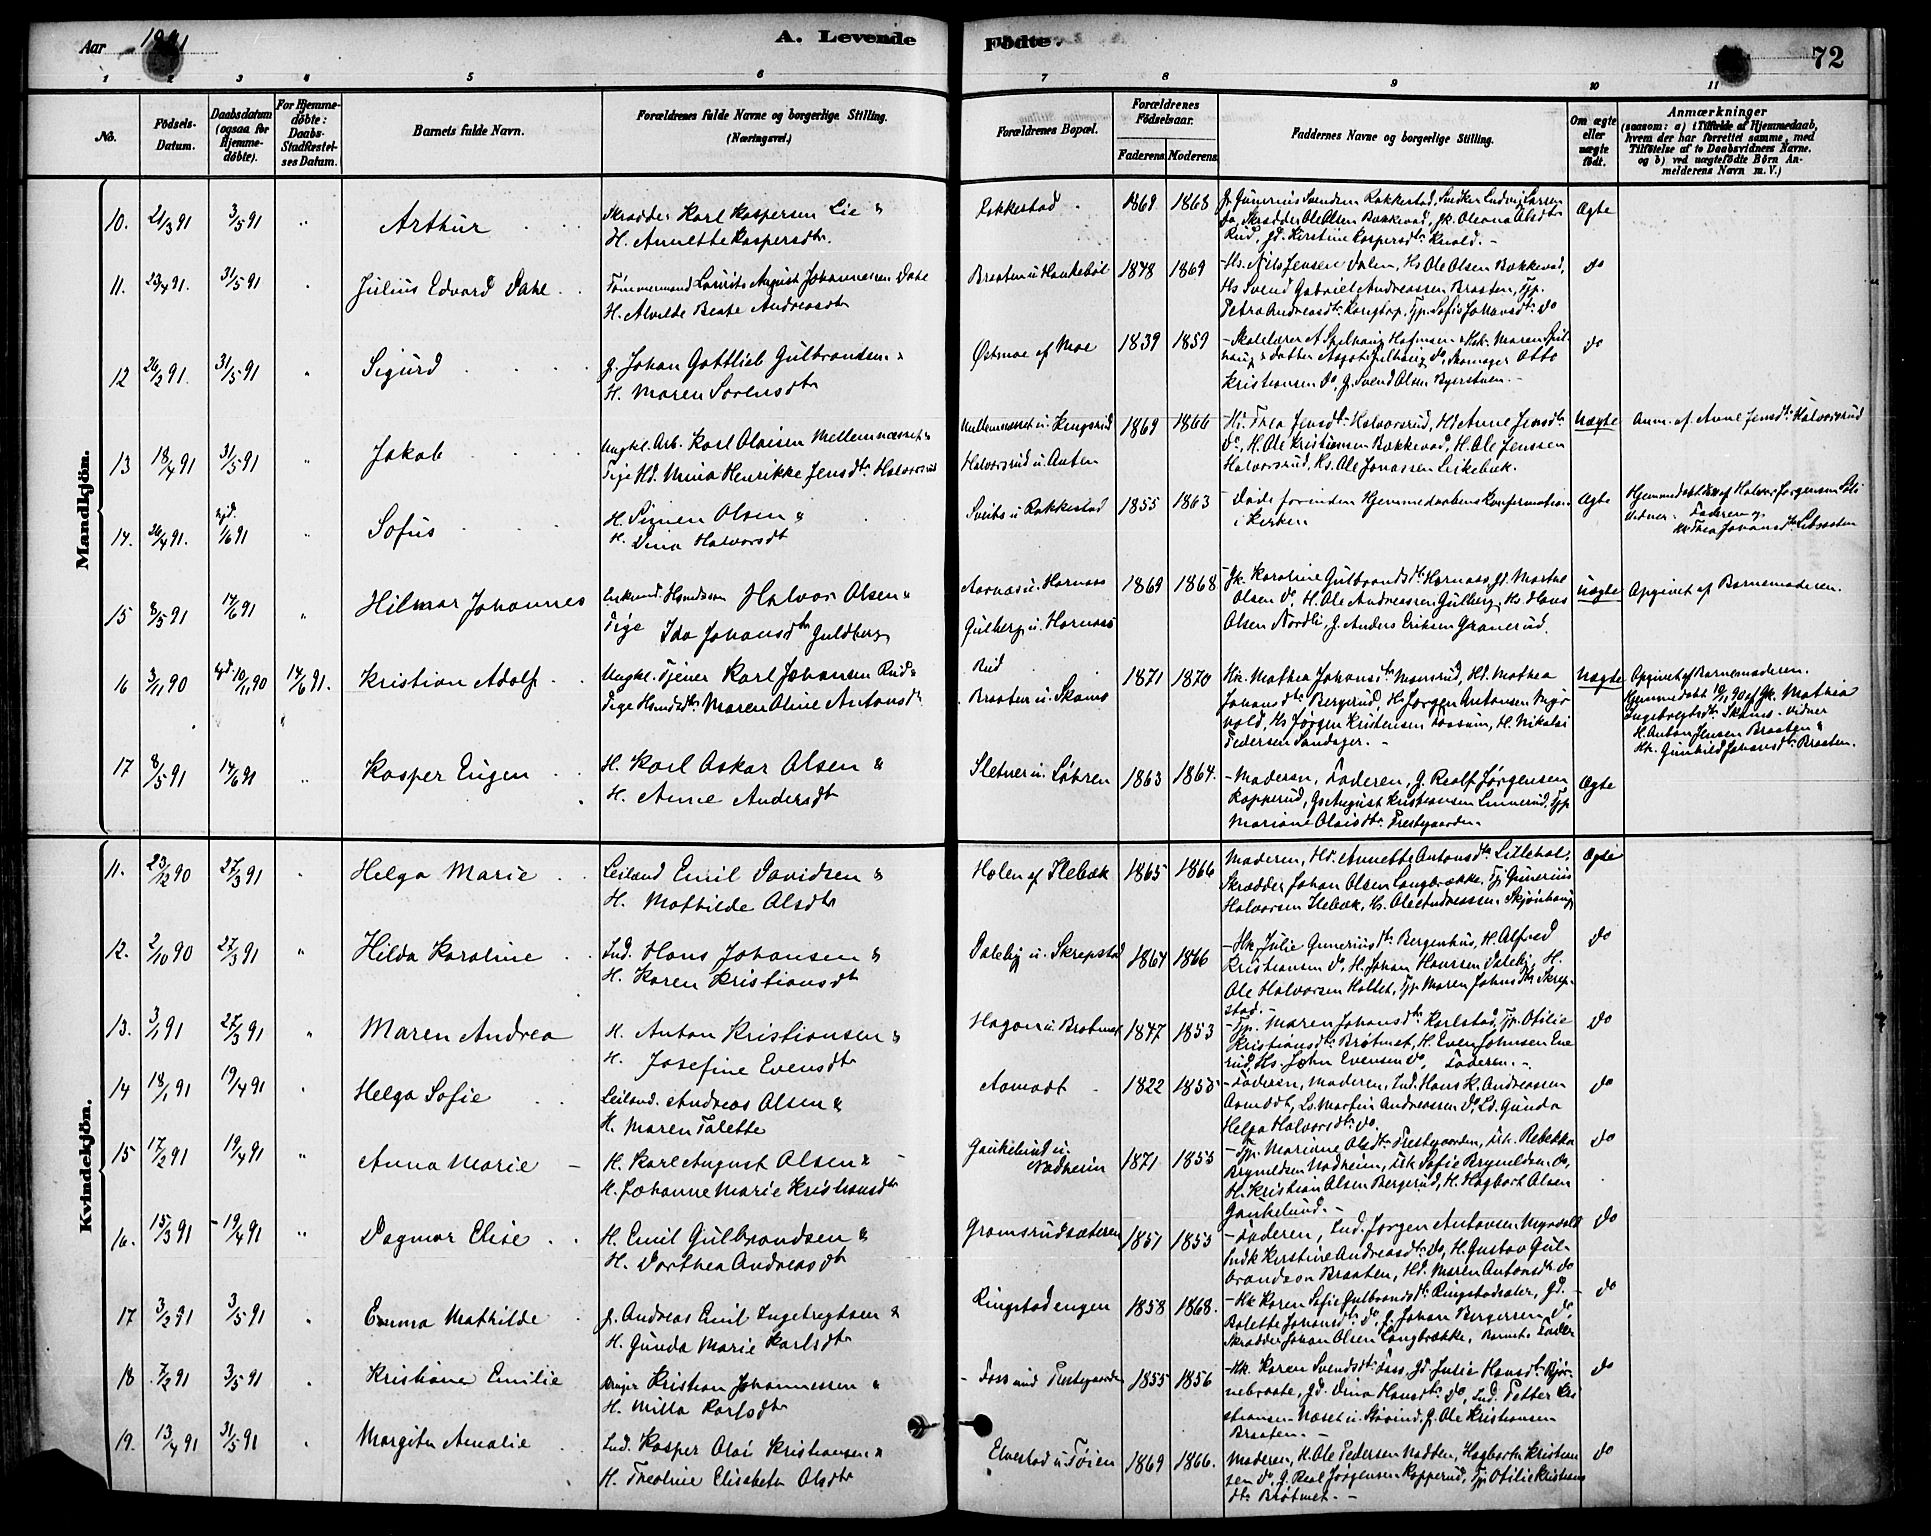 Aar 1891
A. Levende Fødte.
72
1 2 3 4 5 6 7 8 9 10 11
No.
Fødsels-Datum.
Daabsdatum (ogsaa for Hjemme-døbte).
For Hjemme-døbte: Daabs-Stadfæstel-ses Datum.
Barnets fulde Navn.
Forældrenes fulde Navne og borgerlige Stilling. (Næringsvei.)
Forældrenes Bopæl.
Forældrenes Fødselsaar.
Faderens. Moderens.
Faddernes Navne og borgerlige Stilling.
Om ægte eller uægte født.
Anmærkninger
(saasom: a) i Tilfælde af Hjemmedaab,
hvem der har forrettet samme, med
Tilføielse af to Daabsvidners Navne.
og b) ved uægtefødte Børn An-
melderens Navn m. V.)
Mandkjön.
10. 21/3 91 3/5 91 " Arthur
Skrædder Karl Kaspersen Lie "
H. Annette Kaspersdtr.
Rakkestad 1869 1868
G. Gunerius Svendsen Rakkestad, Snedker Ludvig Larsen
do, Skrædder Ole Olsen Bakkevad, Gk. Oleana Olsdtr
Rud, Gd. Kirstine Kaspersdtr Knold. -
Ægte
11. 23/4 91. 31/5 91 " Julius Edvard Dahl
Tømmermand Lauritz August Johannesen Dahl
H. Alvilde Beate Andreasdtr
Braaten u. Haukebøl 1848 1869
- Hs. Nils Jensen Dalen, Hs Ole Olsen Bakkevad,
Hs Svend Gabriel Andreassen Braaten, Tjp.
Petra Andreasdtr Kongtorp, Tjp. Sofie Johansdtr do
do
12 26/3 91. 31/5 91 " Sigurd
G. Johan Gottlieb Gulbrandsen "
H. Maren Sørensdtr
Østmoe af Moe 1839 1859
Kristiansen do, G. Svend Olsen Bjerstuen. -
do
13 18/4 91 31/5 91 " Jakob
Ungkl. Arb. Karl Olaisen Mellemnæsset "
Pige Hd. Mina Henrikke Jensdtr Halvorsrud
Mellemnæsset u. Kingsrud
Halvorsrud u. Anten
1869 1866
- Hd. Thea Jensdtr Halvorsrud, Hd Anne Jensdtr
do, H. Ole Kristiansen Bakkevad, H. Ole Jenssen
Halvorsrud, Hs. Ole Jonassen Lirkebæk.
Uægte
Anm. af Anne Jensdtr Halvorsrud
14. 26/4 91. hjd. 1/6 91 " Sofus
H. Simen Olsen "
H. Dina Halvorsdt
1855 1863
- Døde forinden Hjemmedaabens Konfirmation
i Kirken
Ægte
Hjemmedøbt af Halvor Jørgensen
Vidner. Faderen og
15 8/5 91 14/6 91 " Hilmar Johannes
Halvor Olsen "
Pige Ida Johansdtr Guldberg
Aarnæs u. Harnæs
Gulberg u. Harnæs
1869 1868
Gk. Karoline Gulbrandsdtr Harnæs, Gd. Marthe
Olsen do, H. Ole Andreassen Gulberg, Hs. Hans
Olsen Nordli, G. Anders Eriksen Granerud.
Uægte
Opgivet af Barnemoderen.
16 3/11 90 hjd. 10/11 90 14/6 91. Kristian Adolf
Ungkl. Tjener Karl Johansen Rud "
Pige Hsmdsdtr Maren Oline Antonsdtr
Rud
Braaten u. Skams
1871 1870
Hk. Mathea Johansdtr Monsrud, Hd. Mathea
Johansdtr Bergerud, H. Jørgen Antonsen Myr-
vold, Hs Jørgen Kristensen Aasum, H. Nikolai
Pedersen Sandager. -
Uægte
Opgivet af Barnemoderen.
Hjemmedøbt 10/11 90 af Gk. Mathia
Ingebregtsdtr Skams. Vidner
H. Anton Jensen Braaten "
Hk. Gunhild Johansdtr Braaten.
17 8/5 91 14/6 91 " Kasper Eugen
H. Karl Oskar Olsen "
H. Anne Andersdt
Sletner u. Løbren 1863 1864.
- Moderen, Faderen, G. Realf Jørgensen
Kopperud, Gs August Kristiansen Linnerud, Tjp
Mariane Olaisdtr Prestegaarden.
Ægte
Kvindekjön.
11. 23/12 90 27/3 91 " Helga Marie
Leiland Emil Davidsen "
H. Mathilde Olsdtr
Holen af Slebæk 1865 1866
Moderen, Hd. Annette Antonsdtr Lillehol,
Skrædder Johan Olsen Langbrække, Tj. Gunerius
Halvorsen Slebæk, Hs. Ole Andreassen Skjønhaug
Ægte
12. 2/10 90 27/3 91 " Hilda Karoline
Ind. Hans Johansen "
H. Karen Kristiansdt
Daleby u. Skrepstad 1864 1866
- Hk. Julie Gunneriusdtr Bergenhus, H. Alfred
Kristiansen do, H. Johan Hanssen Daleby, H.
Ole Halvorsen Holtet, Tjp. Maren Johnsdtr Skrep-
stad. -
do
13. 3/1 91 27/3 91 " Maren Andrea
H. Anton Kristiansen "
H. Josefine Evensdtr
Hagan u. Brøtmet 1847 1853
- Tjp. Maren Johansdtr Karlstad, Tjp. Otilie
Kristiansdtr Brøtmet, H. Even Johnsen Eve
rud, Hs. John Evensen do, Faderen. -
do
14 18/1 91 19/4 91 Helga Sofie
Leiland. Andreas Olsen "
H. Maren Tolette
Aamodt 1822 1855
- Faderen, Moderen, Ind. Hans K. Andreassen
Aamodt, Ls. Martin Andreassen do, Ld. Gunda
Helga Halvorsdtr do.
do
15 17/2 91 19/4 91 " Anna Marie
H. Karl August Olsen "
H. Johanne Marie Kristiansdtr
Gaukelund u.
Nadheim
1871 1855
- Tjp. Mariane Olsdtr Prestegaarden, Hk. Rebekka
Brynildsen Nadheim, Hk Sofie Brynildsen do,
H. Kristian Olsen Bergerud, H. Hagbart Olsen
Gaukelund. -
do
16. 15/3 91 19/4 91 " Dagmar Elise
H. Emil Gulbrandsen "
H. Dorthea Andreasdt
Gramsrudsæteren 1851 1855
- Faderen, Ind. Jørgen Antonsen Myrvold
Indk Kirstine Andreasdtr do, H. Gustav Gul-
brandsen Braaten, Hd. Maren Antonsdtr do
do
17 3/2 91 3/5 91 " Emma Mathilde
G. Andreas Emil Ingebregtsen "
H. Gunda Marie Karlsdtr
Ringstadengen 1858 1868.
- Hk Karen Sofie Gulbrandsdtr Ringstadsæter, Gd.
Bolette Johansdtr do, G. Johan Bergersen do,
Skrædder Johan Olsen Langbrække, Barnets Fader
- do
18 7/2 91 3/5 91 " Kristiane Emilie
Kristian Johannessen "
H. Milla Karlsdt
Foss und Prestegaarden 1855 1856
- Hk. Karen Svendsdtr Foss, Gd. Julie Hansdtr Bjør-
nebraate, Gd. Dina Hansdtr do, Ind. Petter Kri
stiansen Næset u. Støvind, G. Ole Kristiansen
Braaten. -
do
19. 13/4 91 31/5 91 " Margith Amalie
Ind. Kasper Olai Kristiansen "
H. Theoline Elisabeth Olsdtr
Elvestad u. Tøien 1869 1866.
Moderen, H. Ole Pedersen Nadden, Hagbarth Kristian
sen do, G. Real Jørgensen Kopperud, Tjp Otilie Kristians
dtr Brøtmet. -
do